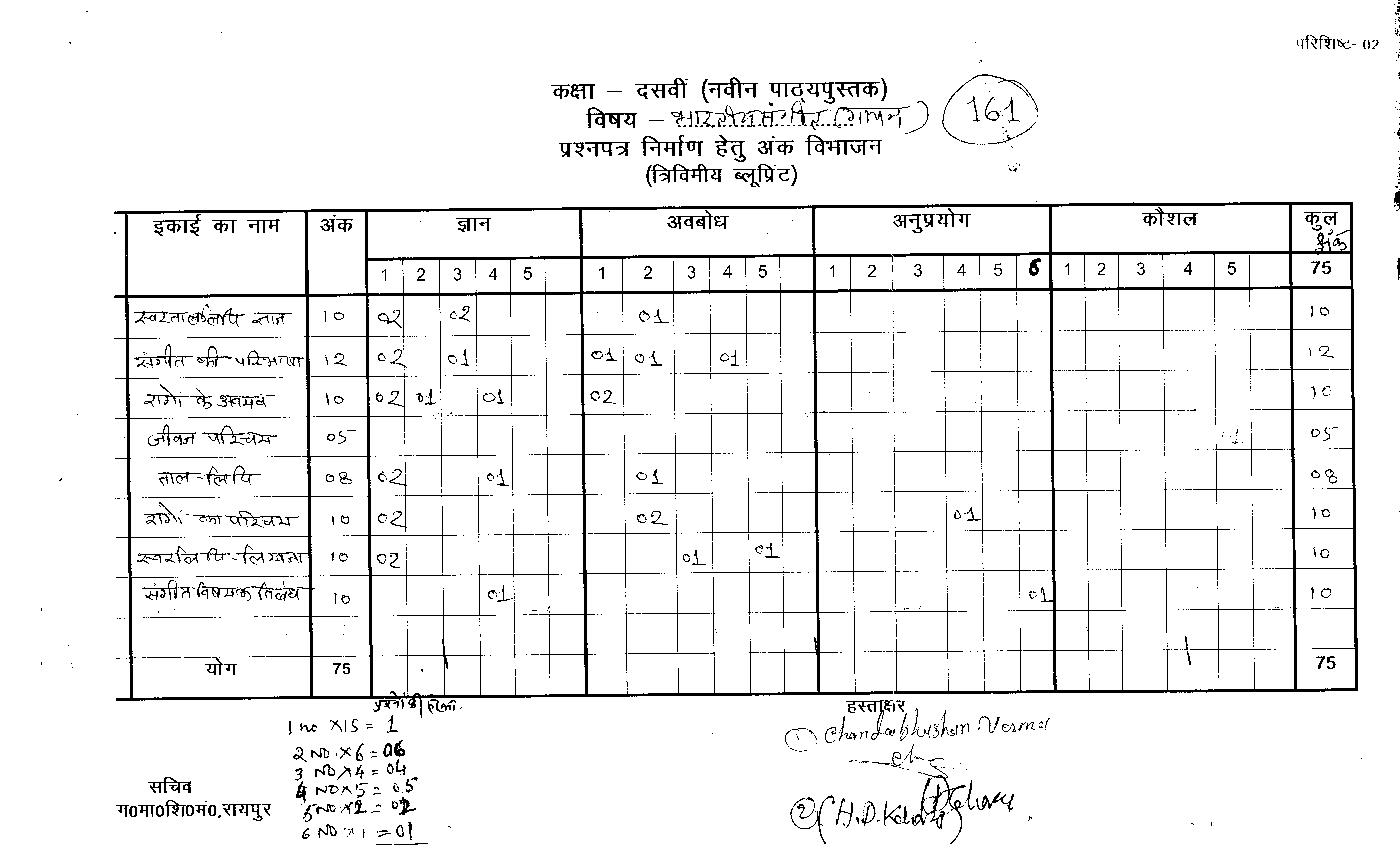 परिशिष्ट- 02
कक्षा – दसवीं (नवीन पाठ्यपुस्तक)
विषय – भारतीय संगीत (गायन) 161
प्रश्नपत्र निर्माण हेतु अंक विभाजन
(त्रिविमीय ब्लूप्रिंट)
इकाई का नाम अंक ज्ञान अवबोध अनुप्रयोग कौशल कुल अंक
1 2 3 4 5 1 2 3 4 5 1 2 3 4 5 6 1 2 3 4 5 75
स्वरताललिपि ज्ञान 10 02 02 01 10
संगीत की परिभाषा 12 02 01 01 01 01 12
रागों के अवयव 10 02 01 01 02 10
जीवन परिचय 05 01 05
ताल-लिपि 08 02 01 01 08
रागों का परिचय 10 02 02 01 10
स्वरलिपि-लिखना 10 02 01 01 10
संगीत विषयक निबंध 10 01 01 10
योग 75 75
हस्ताक्षर
1 no X15 = 1
2 NO. X 6 = 06
3 NO X 4 = 04
4 NO X 5 = 05
5 NO X 2 = 02
6 NO X 1 = 01
① Chandrabhushan Verma
② (H.D.
सचिव
ग0मा0शि0मं0,रायपुर